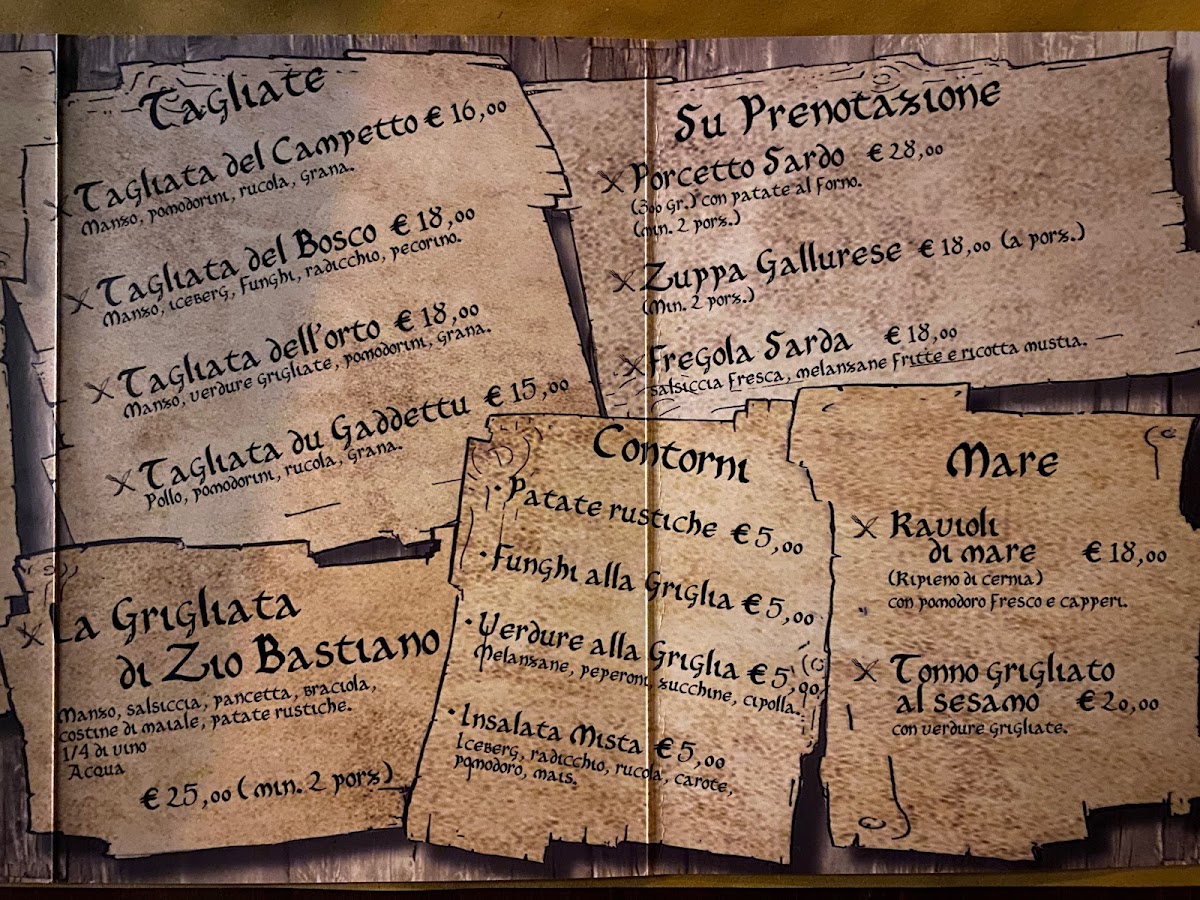 Tagliate
Tagliata del Campetto € 16,00
Manzo, pomodorini, rucola, grana.
Tagliata del Bosco € 18,00
Manzo, iceberg, funghi, radicchio, pecorino.
Tagliata dell'orto € 18,00
Manzo, verdure grigliate, pomodorini, grana.
Tagliata du Gaddettu € 15,00
Pollo, pomodorini, rucola, grana.
La Grigliata
di Zio Bastiano
Manzo, salsiccia, pancetta, braciola,
costine di maiale, patate rustiche.
1/4 di vino
Acqua
€ 25,00 (min. 2 porz)
Su Prenotazione
Porcetto Sardo € 28,00
(300 gr.) con patate al forno.
(min. 2 porz.)
Zuppa Gallurese € 18,00 (a porz.)
(Min. 2 porz.)
Fregola Sarda € 18,00
salsiccia fresca, melanzane fritte e ricotta mustia.
Contorni
• Patate rustiche € 5,00
• Funghi alla Griglia € 5,00
• Verdure alla Griglia € 5,00
Melanzane, peperoni, zucchine, cipolla.
• Insalata Mista € 5,00
Iceberg, radicchio, rucola, carote,
pomodoro, mais.
Mare
Ravioli
di mare € 18,00
(Ripieno di cernia)
con pomodoro fresco e capperi.
Tonno grigliato
al sesamo € 20,00
con verdure grigliate.